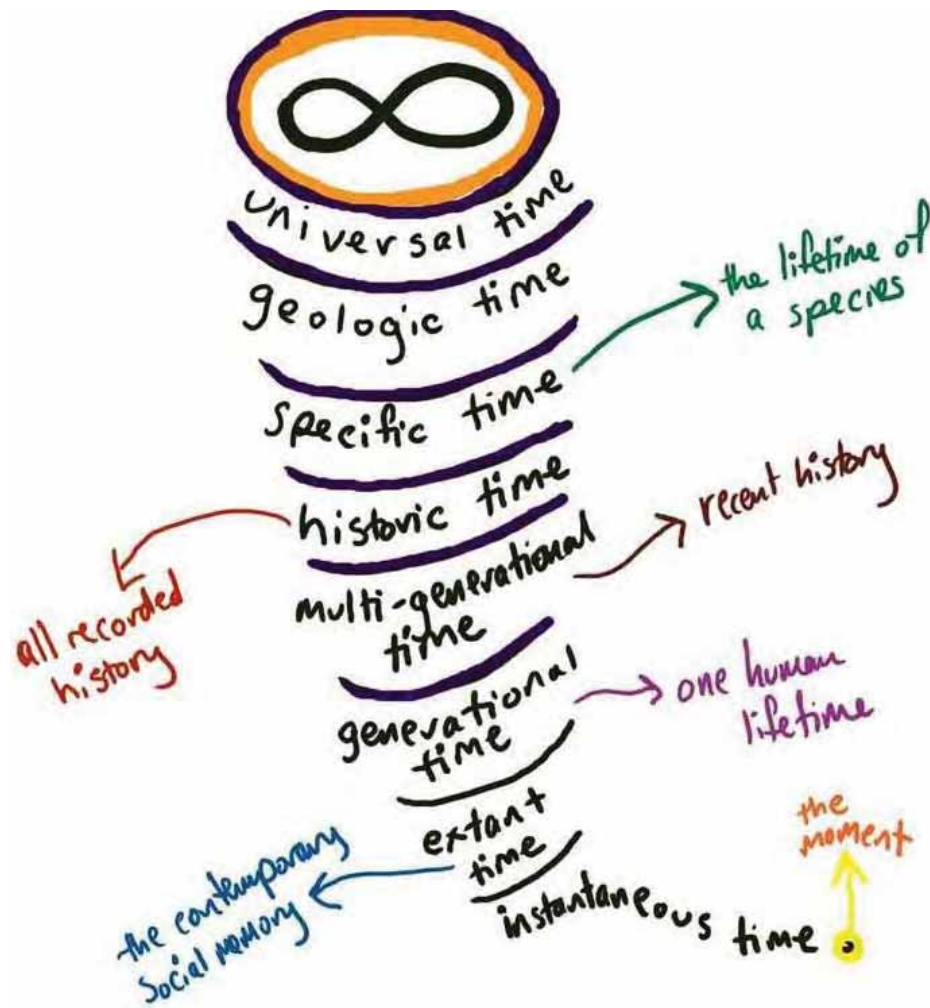 universal time
geologic time
the lifetime of
a species
specific time
historic time
all recorded
history
multi-generational
time
recent history
generational
time
one human
lifetime
extant
time
the contemporary
social memory
instantaneous time
the
moment